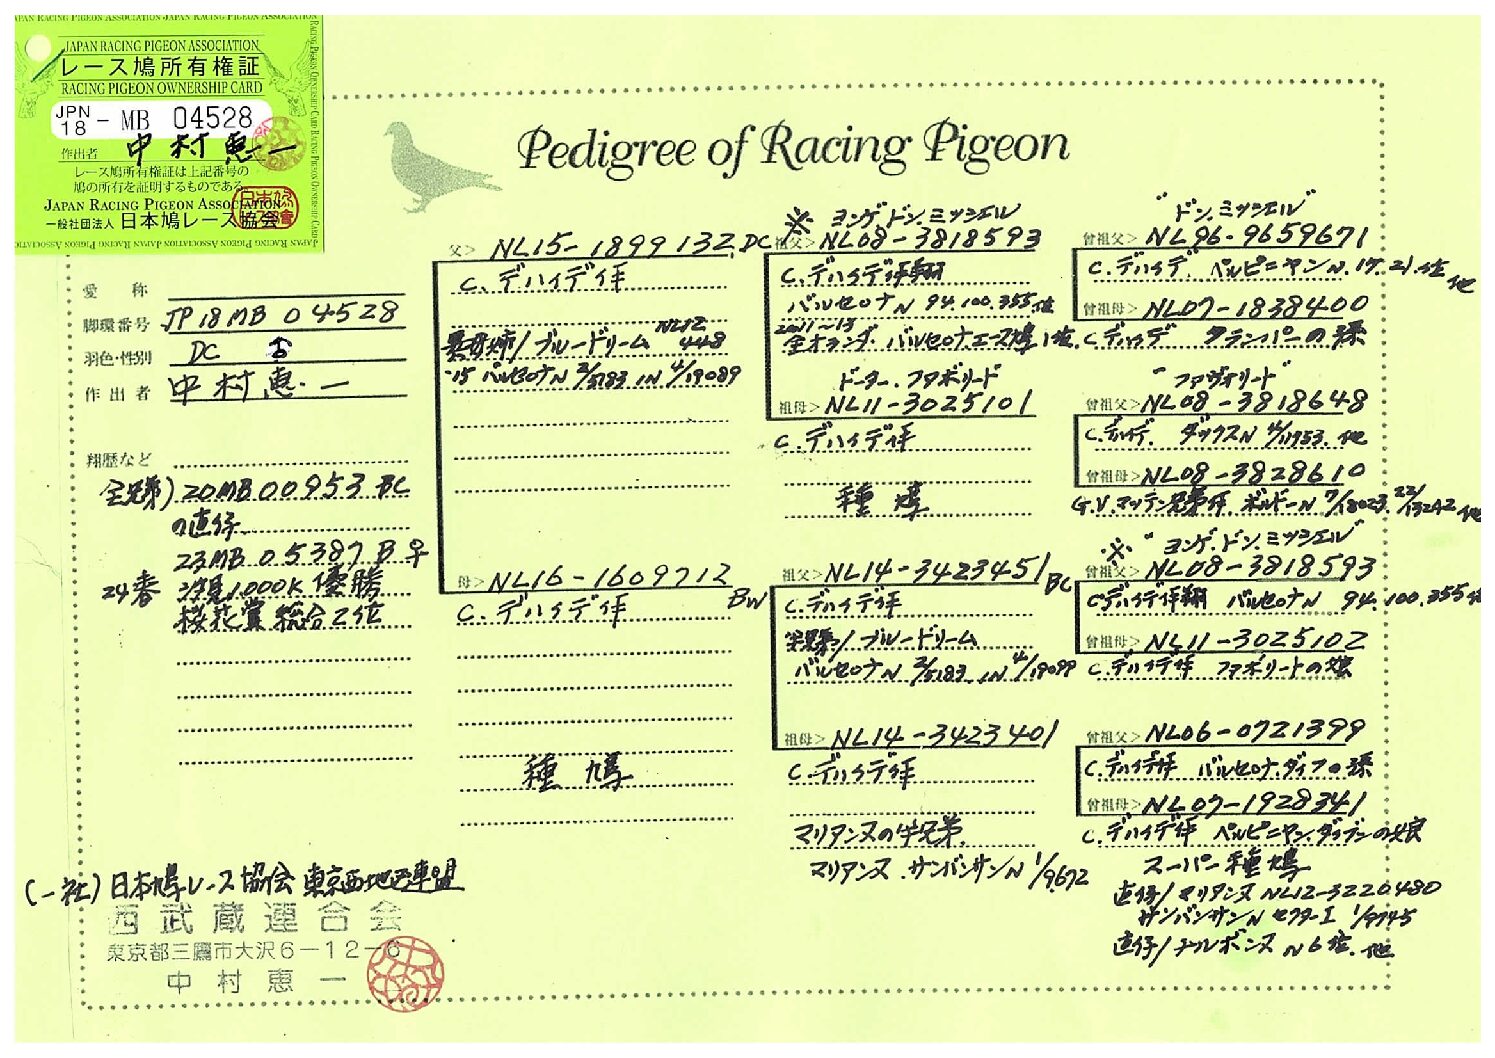 JAPAN RACING PIGEON ASSOCIATION
レース鳩所有権証
RACING PIGEON OWNERSHIP CARD
JPN
18 - MB 04528
作出者 中村恵一
レース鳩所有権証は上記番号の
鳩の所有を証明するものである。
JAPAN RACING PIGEON ASSOCIATION
一般社団法人 日本鳩レース協会
Pedigree of Racing Pigeon
愛称
脚環番号 JP18MB04528
羽色・性別 DC ♂
作出者 中村恵一
翔歴など
全兄弟) 20MB00953 BC
の直仔
23MB05387 B ♀
24春 1,000K 優勝
桜花賞 総合2位
父> NL15-1899132 DC
C.デハイデ作
ブルードリーム NL12 448
'15 バルセロナN 2/5183 IN 4/19089
母> NL16-1609712 BW
C.デハイデ作
種鳩
※ ヨンゲ.ドン.ミッシェル
祖父> NL08-3818593
C.デハイデ作翔
バルセロナN 94.100.355位
2011~13
全オランダ バルセロナエース鳩1位
ドーター.ファボリード
祖母> NL11-3025101
C.デハイデ作
種鳩
祖父> NL14-3423451 BC
C.デハイデ作
全兄弟/ブルードリーム
バルセロナN 2/5183 IN 4/19099
祖母> NL14-3423401
C.デハイデ作
マリアンヌの半兄弟
マリアンヌ.サンバンサンN 1/9,672
"ドン.ミッシェル"
曾祖父> NL96-9659671
C.デハイデ ペルピニャンN.17.21位 他
曾祖母> NL07-1838400
C.デハイデ の孫
"ファヴォリード"
曾祖父> NL08-3818648
C.デハイデ ダックスN 4/11953.他
曾祖母> NL08-3828610
G.V.マッテン兄弟作 ボルドーN 7/18023. 22/13242 他
※ "ヨンゲ.ドン.ミッシェル"
曾祖父> NL08-3818593
C.デハイデ作翔 バルセロナN 94.100.355位
曾祖母> NL11-3025102
C.デハイデ作 ファボリートの娘
曾祖父> NL06-0721399
C.デハイデ作 バルセロナ.ダイフの孫
曾祖母> NL07-1928341
C.デハイデ作 ペルピニャン.ダイブンの娘
スーパー種鳩
直仔/マリアンヌ NL12-3220480
サンバンサンN セクターI 1/9745
直仔/ナルボンヌ N6位.他
(一社)日本鳩レース協会 東京西地区連盟
西武蔵連合会
東京都三鷹市大沢6-12-6
中村恵一